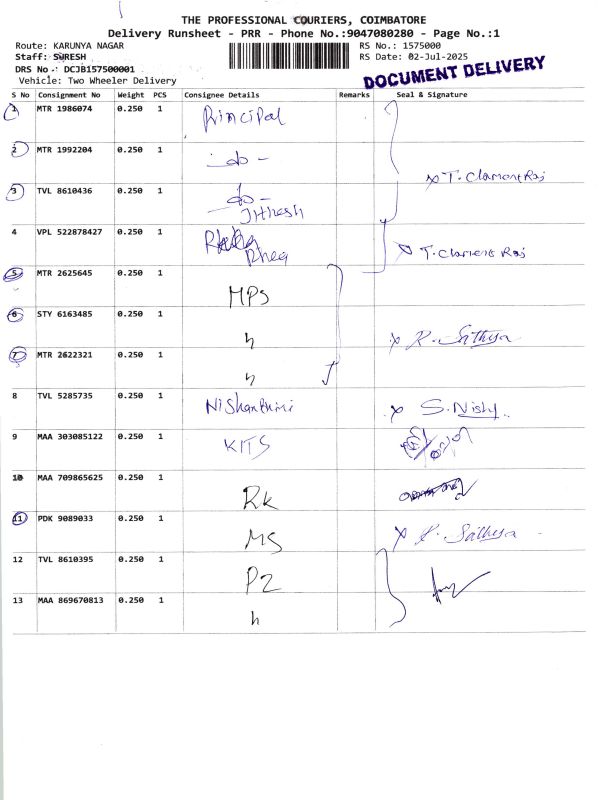 THE PROFESSIONAL COURIERS, COIMBATORE
Delivery Runsheet - PRR - Phone No.:9047080280 - Page No.:1
Route: KARUNYA NAGAR RS No.: 1575000
Staff: SURESH RS Date: 02-Jul-2025
DRS No : DCJB157500001
Vehicle: Two Wheeler Delivery
DOCUMENT DELIVERY
S No Consignment No Weight PCS Consignee Details Remarks Seal & Signature
1 MTR 1986074 0.250 1 Principal
2 MTR 1992204 0.250 1 -do-
T. Clament Raj
3 TVL 8610436 0.250 1 -do-
Jithesh
4 VPL 522878427 0.250 1 Rhea T. Clament Raj
5 MTR 2625645 0.250 1 MPS
6 STY 6163485 0.250 1 h R. Sathya
7 MTR 2622321 0.250 1 h
8 TVL 5285735 0.250 1 Nishanthini S. Nishy.
9 MAA 303085122 0.250 1 KITS
10 MAA 709865625 0.250 1 RK
11 PDK 9089033 0.250 1 MS R. Sathya
12 TVL 8610395 0.250 1 P2
13 MAA 869670813 0.250 1 h